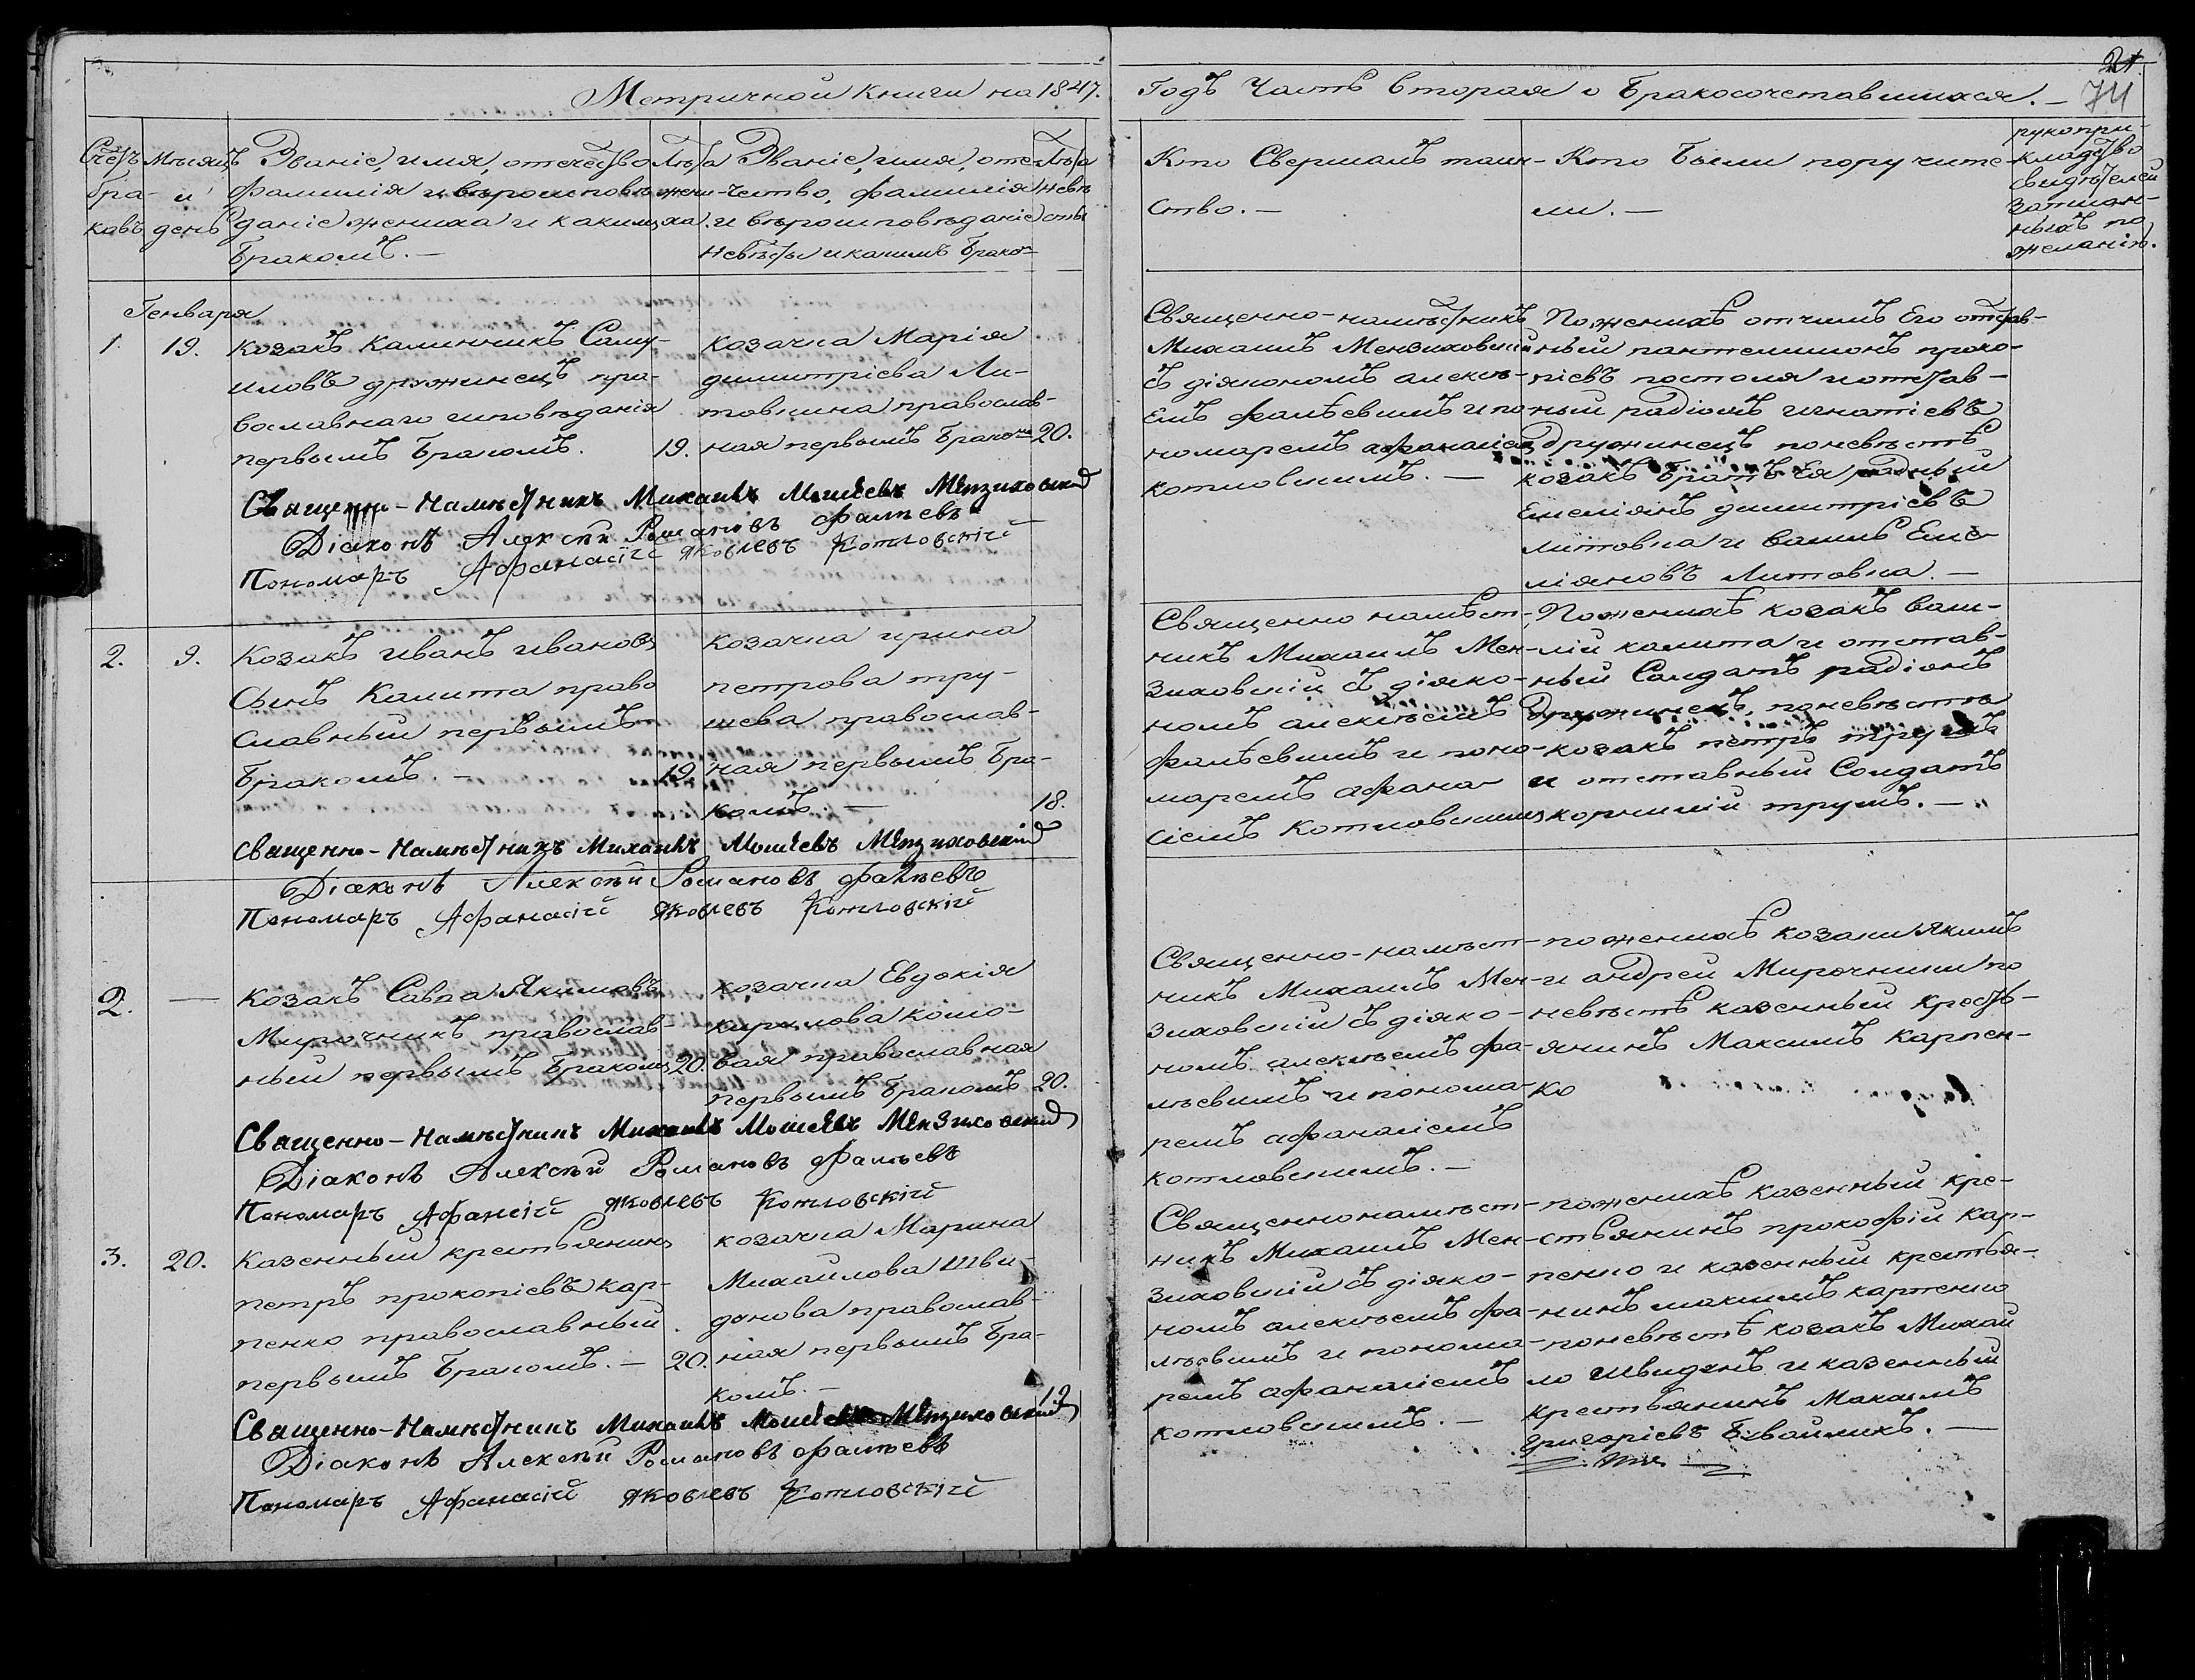 Метричной книги на 1847. Годъ Часть вторая о Бракосочетавшихся. –
21.
74
Счетъ Бра- ковъ
Мѣсяцъ и день
Званіе, имя, отечество
фамилія и вѣроисповѣ-
даніе жениха и какимъ
Бракомъ. –
Лѣта жени- ха.
Званіе, имя, оте-
чество, фамилія
и вѣроисповѣданіе
невѣсты и какимъ Брако-
Лѣта невѣ сты
Кто Свершалъ таин-
ство. –
Кто Были поручите-
ли. –
рукопри-
кладство
свидѣтелей
записан-
ныхъ по
желанію.
Генваря
1. 19.
козакъ Калинникъ Саму-
иловъ дружинецъ пра-
вославнаго исповѣданія
первымъ Бракомъ. 19.
козачка Марія
димитріева Ли-
товкина православ-
ная первымъ Брако- 20.
Священно-намѣстникъ
Михаилъ Мензиховскій
съ діякономъ алексѣ-
емъ фалѣевымъ и по
номаремъ афанасіем
котловскимъ. –
По женихѣ отчимъ Его отстав-
ный пантелимонъ проко-
піевъ постоля и отстав-
ный радіонъ игнатіевъ
дружинецъ по невѣстѣ
козакъ Братъ Ея радный
Емеліянъ димитріевъ
литовка и василь Еме-
ліяновъ Литовка. –
Священно-Намѣстникъ Михаилъ Моисеевъ Мензиховский
Діаконъ Алексѣй Романовъ Фалѣевъ
Пономарь Афанасій Яковлевъ Котловскій
2. 9.
Козакъ Иванъ Ивановъ
Сынъ Калита право
славный первымъ
Бракомъ. – 19.
козачка ирина
петрова тру-
шева православ-
ная первымъ Бра-
комъ. – 18.
Священно намѣст-
никъ Михаилъ Мен-
зиховскій съ діяко-
номъ алексѣемъ
фалѣевымъ и поно-
маремъ афана-
сіемъ котловским
По женихѣ козакъ васи-
лій калита и отстав-
ный Салдатъ радіонъ
дружинецъ, по невѣстѣ
козакъ петръ трушъ
и отставный Солдатъ
корнилій трушъ. –
Священно-Намѣстникъ Михаилъ Моисеевъ Мензиховскій
Діаконъ Алексѣй Романовъ Фалѣевъ
Пономарь Афанасій Яковлевъ Котловскій
2. –
Козакъ Савва Якимовъ
Мирочникъ православ-
ный первымъ Бракомъ 20.
козачка Евдокія
кирилова комо-
вая православная
первымъ Бракомъ 20.
Священно-намѣст-
никъ Михаилъ Мен-
зиховскій съ діяко-
номъ алексѣемъ фа-
лѣевымъ и понома-
ремъ афанасіемъ
котловскимъ. –
по женихѣ козаки Якимъ
и андрей Мирочники по
невѣстѣ казенный кресть-
янинъ Максимъ Карпен-
ко
Священно-Намѣстникъ Михаилъ Моисеевъ Мензиховский
Діаконъ Алексѣй Романовъ Фалѣевъ
Пономарь Афансій Яковлевъ Котловскій
3. 20.
Казенный крестьянинъ
петръ прокопіевъ кар-
пенко православный
первымъ Бракомъ. – 20.
козачка Марина
Михаилова Шви-
донова православ-
ная первымъ Бра-
комъ. – 19
Священнонамѣст-
никъ Михаилъ Мен-
зиховскій съ діяко-
номъ алексѣемъ фа-
лѣевымъ и понома-
ремъ афанасіемъ
котловскимъ. –
по женихѣ казенный кре-
стьянинъ прокофій кар-
пенко и казенный крестья-
нинъ максимъ карпенко
по невѣстѣ козакъ Михаи
ло Швиденъ и казенный
крестьянинъ Максимъ
григоріевъ Бывалихъ. –
Священно-Намѣстникъ Михаилъ Моисеевъ Мензиховский
Діаконъ Алексѣй Романовъ Фалѣевъ
Пономарь Афанасій Яковлевъ Котловскій